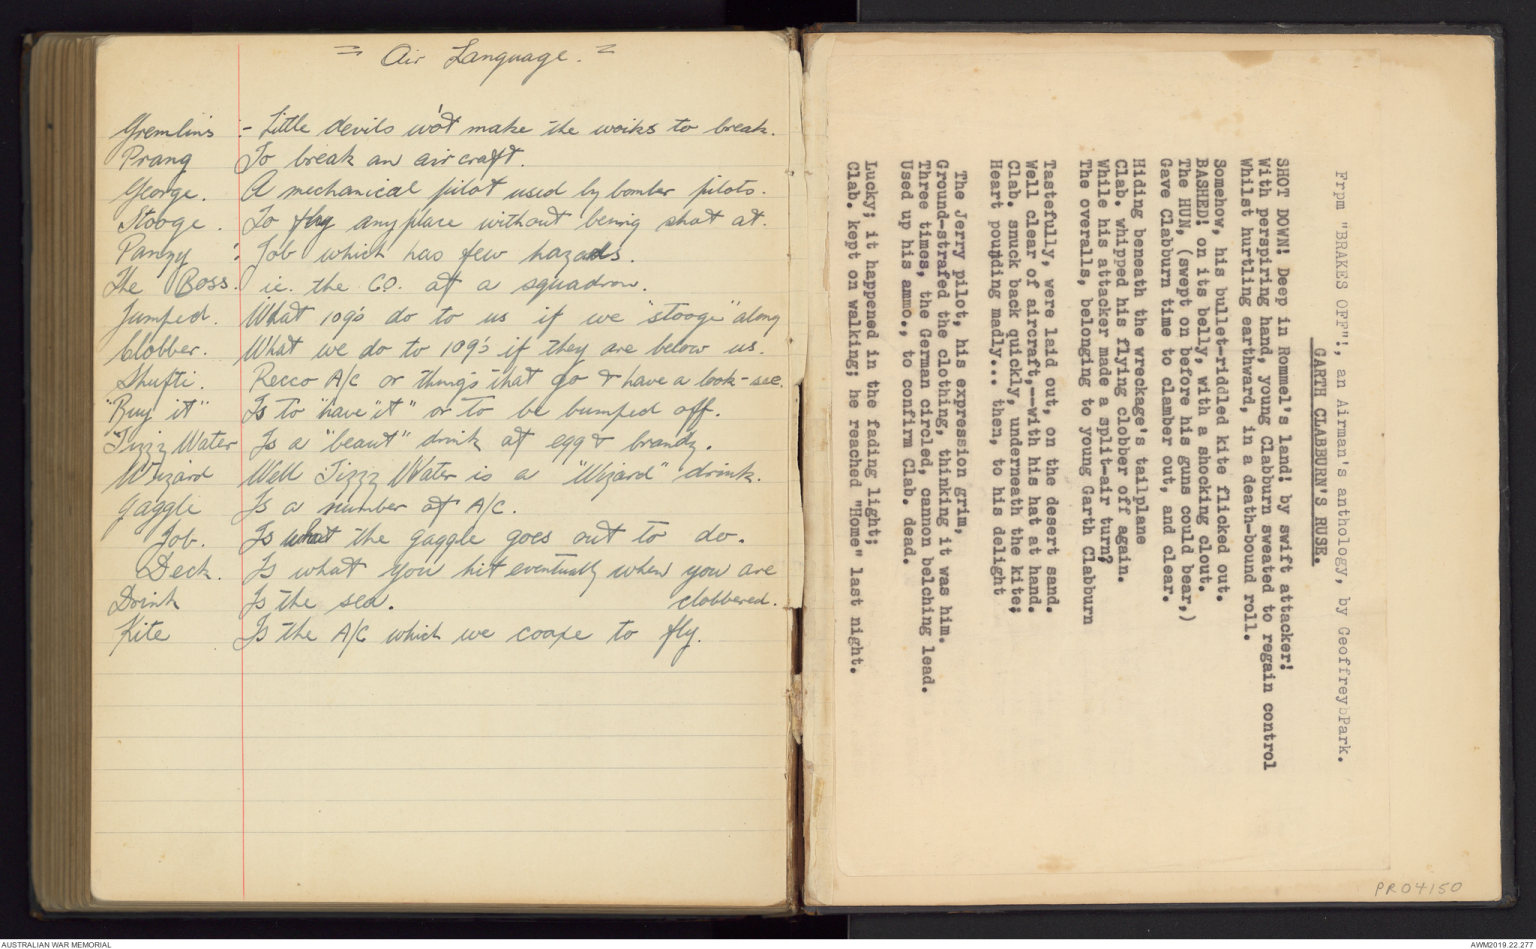 = Air Language. =
Gremlins :- Little devils wot make the woiks to break.
Prang To break an aircraft.
George. A mechanical pilot used by bomber pilots.
Stooge. To fly anyplace without being shot at.
Panzy : Job which has few hazards.
The Boss. ie. the C.O. of a squadron.
Jumped. What 109's do to us if we "stooge" along
Clobber. What we do to 109's if they are below us.
Shufti. Recco A/C or things that go & have a look-see.
"Buy it" Is to "have it" or to be bumped off.
"Tizzz Water Is a "beaut" drink of egg & brandy.
Wizard Well Tizzz Water is a "Wizard" drink.
Gaggle Is a number of A/C.
Job. Is what the gaggle goes out to do.
Deck. Is what you hit eventually when you are
clobbered.
Drink Is the sea.
Kite Is the A/C which we coaxe to fly.
Frpm "BRAKES OFF"!, an Airman's anthology, by GeoffreybPark.
GARTH CLABBURN'S RUSE.
SHOT DOWN! Deep in Rommel's land! by swift attacker!
With perspiring hand, young Clabburn sweated to regain control
Whilst hurtling earthward, in a death-bound roll.
Somehow, his bullet-riddled kite flicked out.
BASHED! on its belly, with a shocking clout.
The HUN, (swept on before his guns could bear,)
Gave Clabburn time to clamber out, and clear.
Hiding beneath the wreckage's tailplane
Clab. whipped his flying clobber off again.
While his attacker made a split-air turn?
The overalls, belonging to young Garth Clabburn
Tastefully, were laid out, on the desert sand.
Well clear of aircraft,--with his hat at hand.
Clab. snuck back quickly, underneath the kite;
Heart pounding madly... then, to his delight
The Jerry pilot, his expression grim,
Ground-strafed the clothing, thinking it was him.
Three times, the German circled, cannon belching lead.
Used up his ammo., to confirm Clab. dead.
Lucky; it happened in the fading light;
Clab. kept on walking; he reached "Home" last night.
PR04150
AUSTRALIAN WAR MEMORIAL
AWM2019.22.277